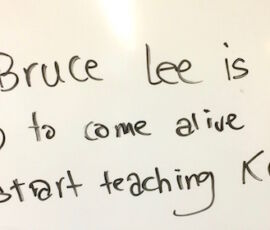 Bruce Lee is
to come alive
start teaching